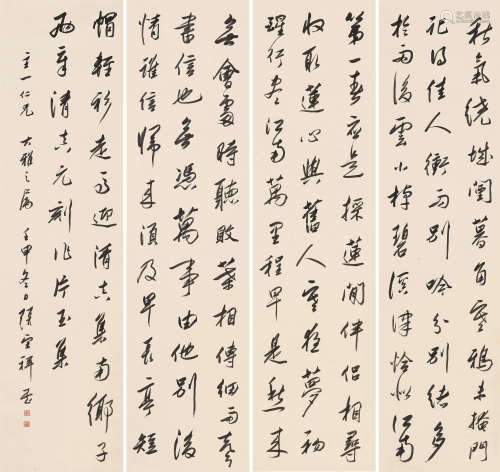 秋氣繞城闉暮角寒鴉未掩門
記得佳人衝雨別吟分別緒多
於雨後雲小棹碧溪津恰似江南
第一春應是採蓮閒伴侶相尋
收取蓮心與舊人寒夜夢初
醒行盡江南萬里程早是愁來
無會處時聽敗葉相傳細雨聲
書信也無憑萬事由他別後
情誰信歸來須及早長亭短
帽輕衫走馬迎清真集南鄉子
兩章清真元刻作片玉集
主一仁兄大雅之屬壬申冬日